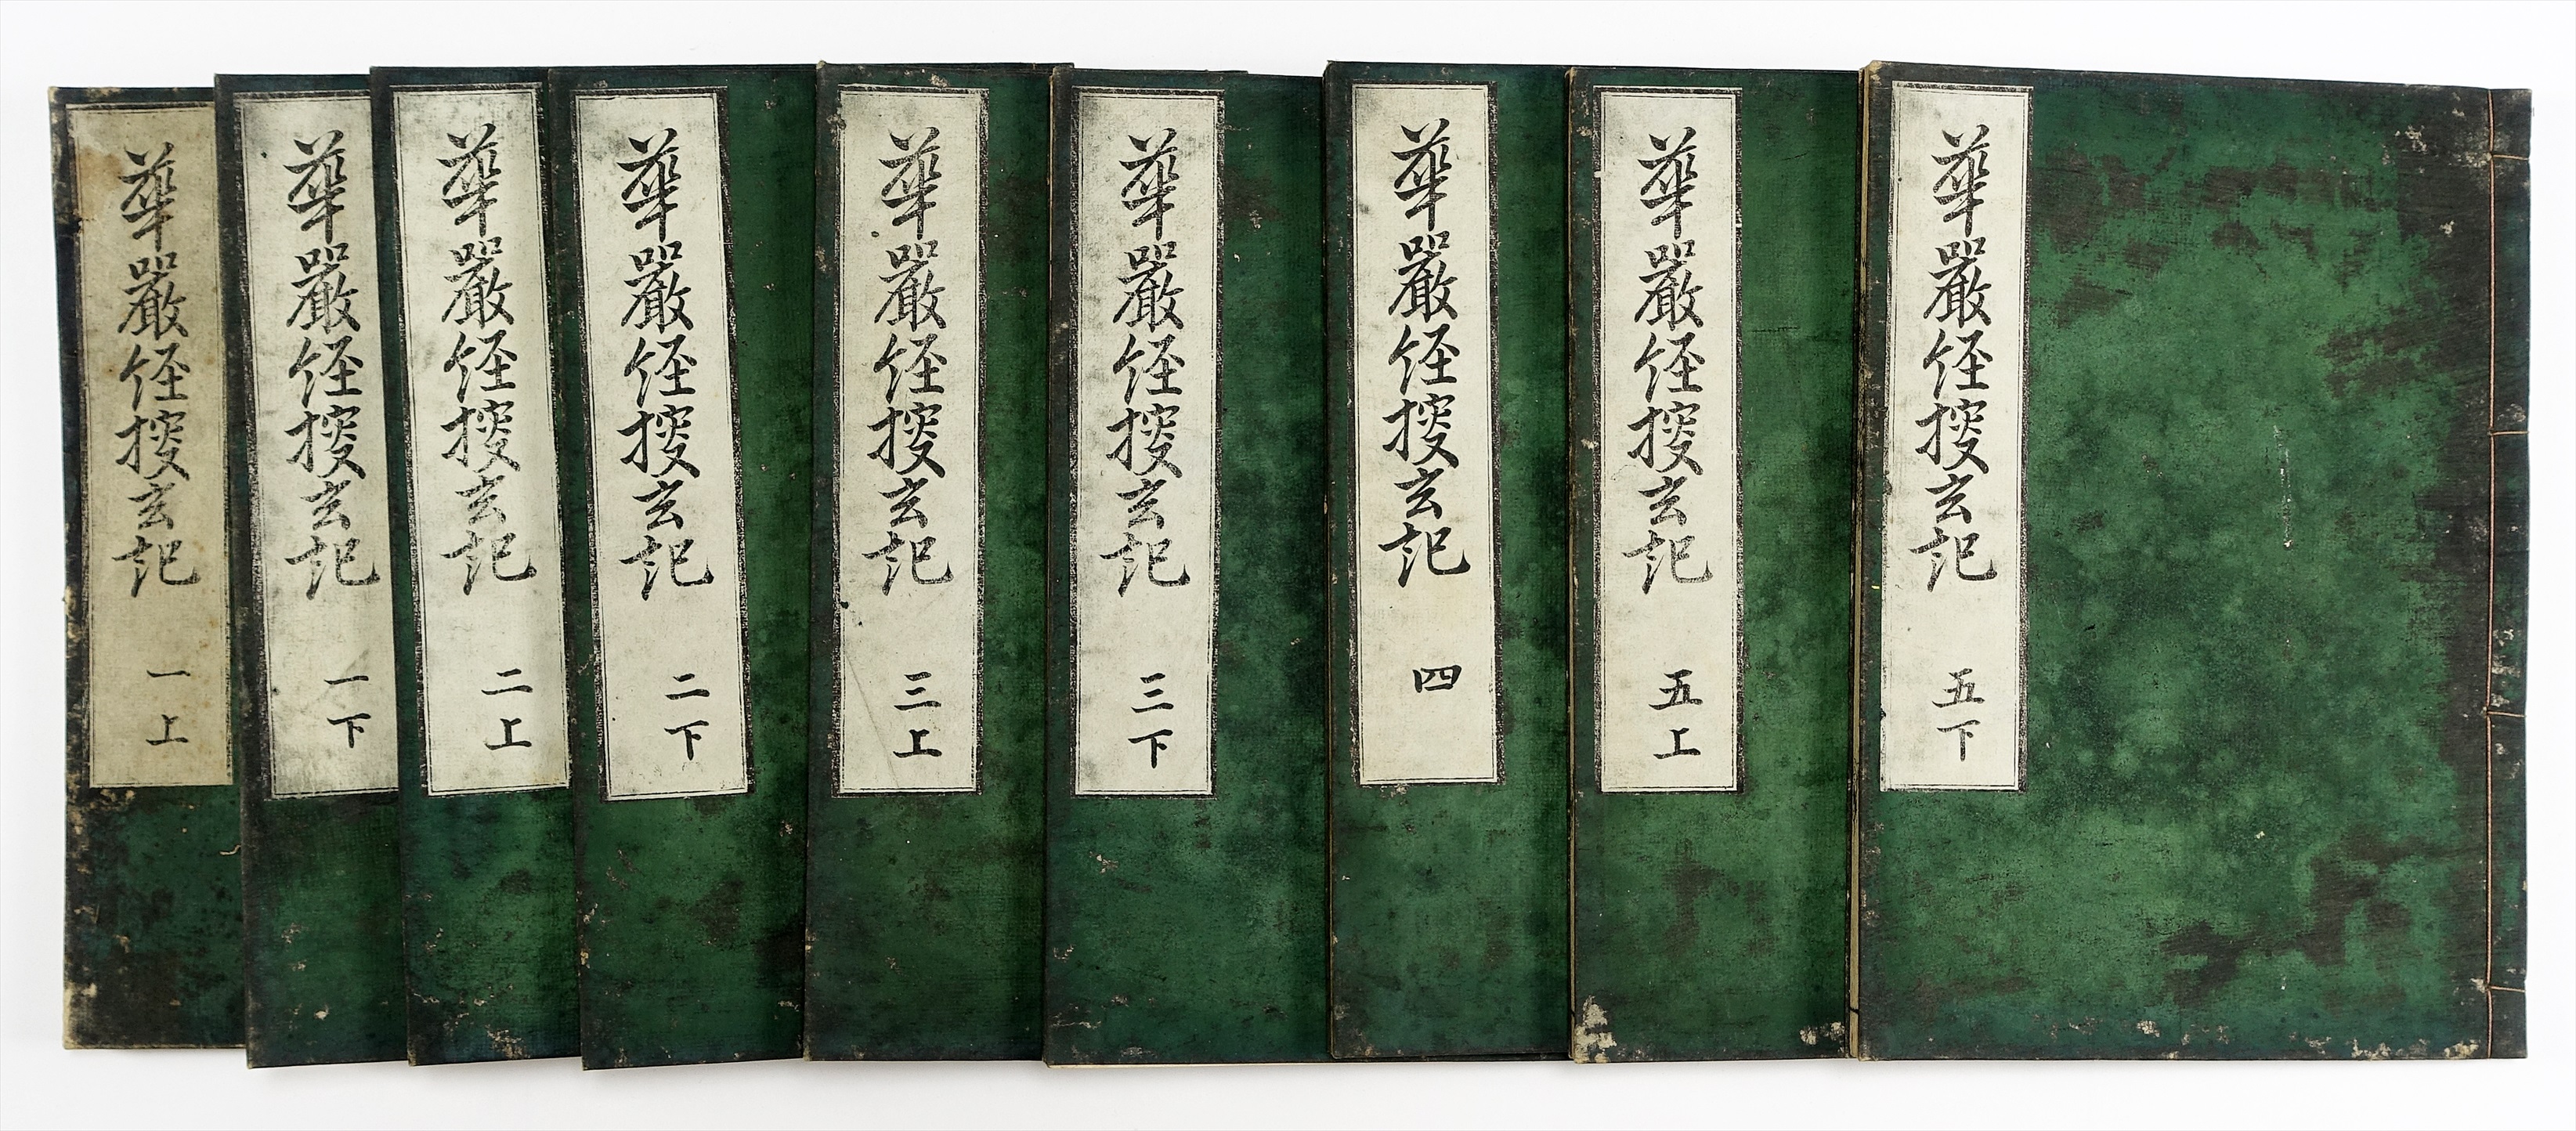 華嚴経搜玄記 一上
華嚴経搜玄記 一下
華嚴経搜玄記 二上
華嚴経搜玄記 二下
華嚴経搜玄記 三上
華嚴経搜玄記 三下
華嚴経搜玄記 四
華嚴経搜玄記 五上
華嚴経搜玄記 五下